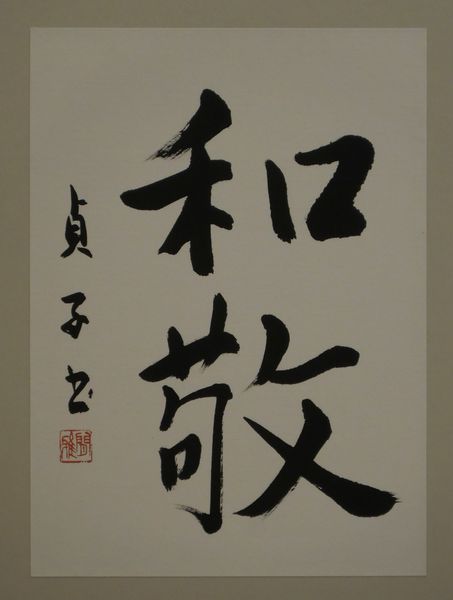 和敬
貞子书